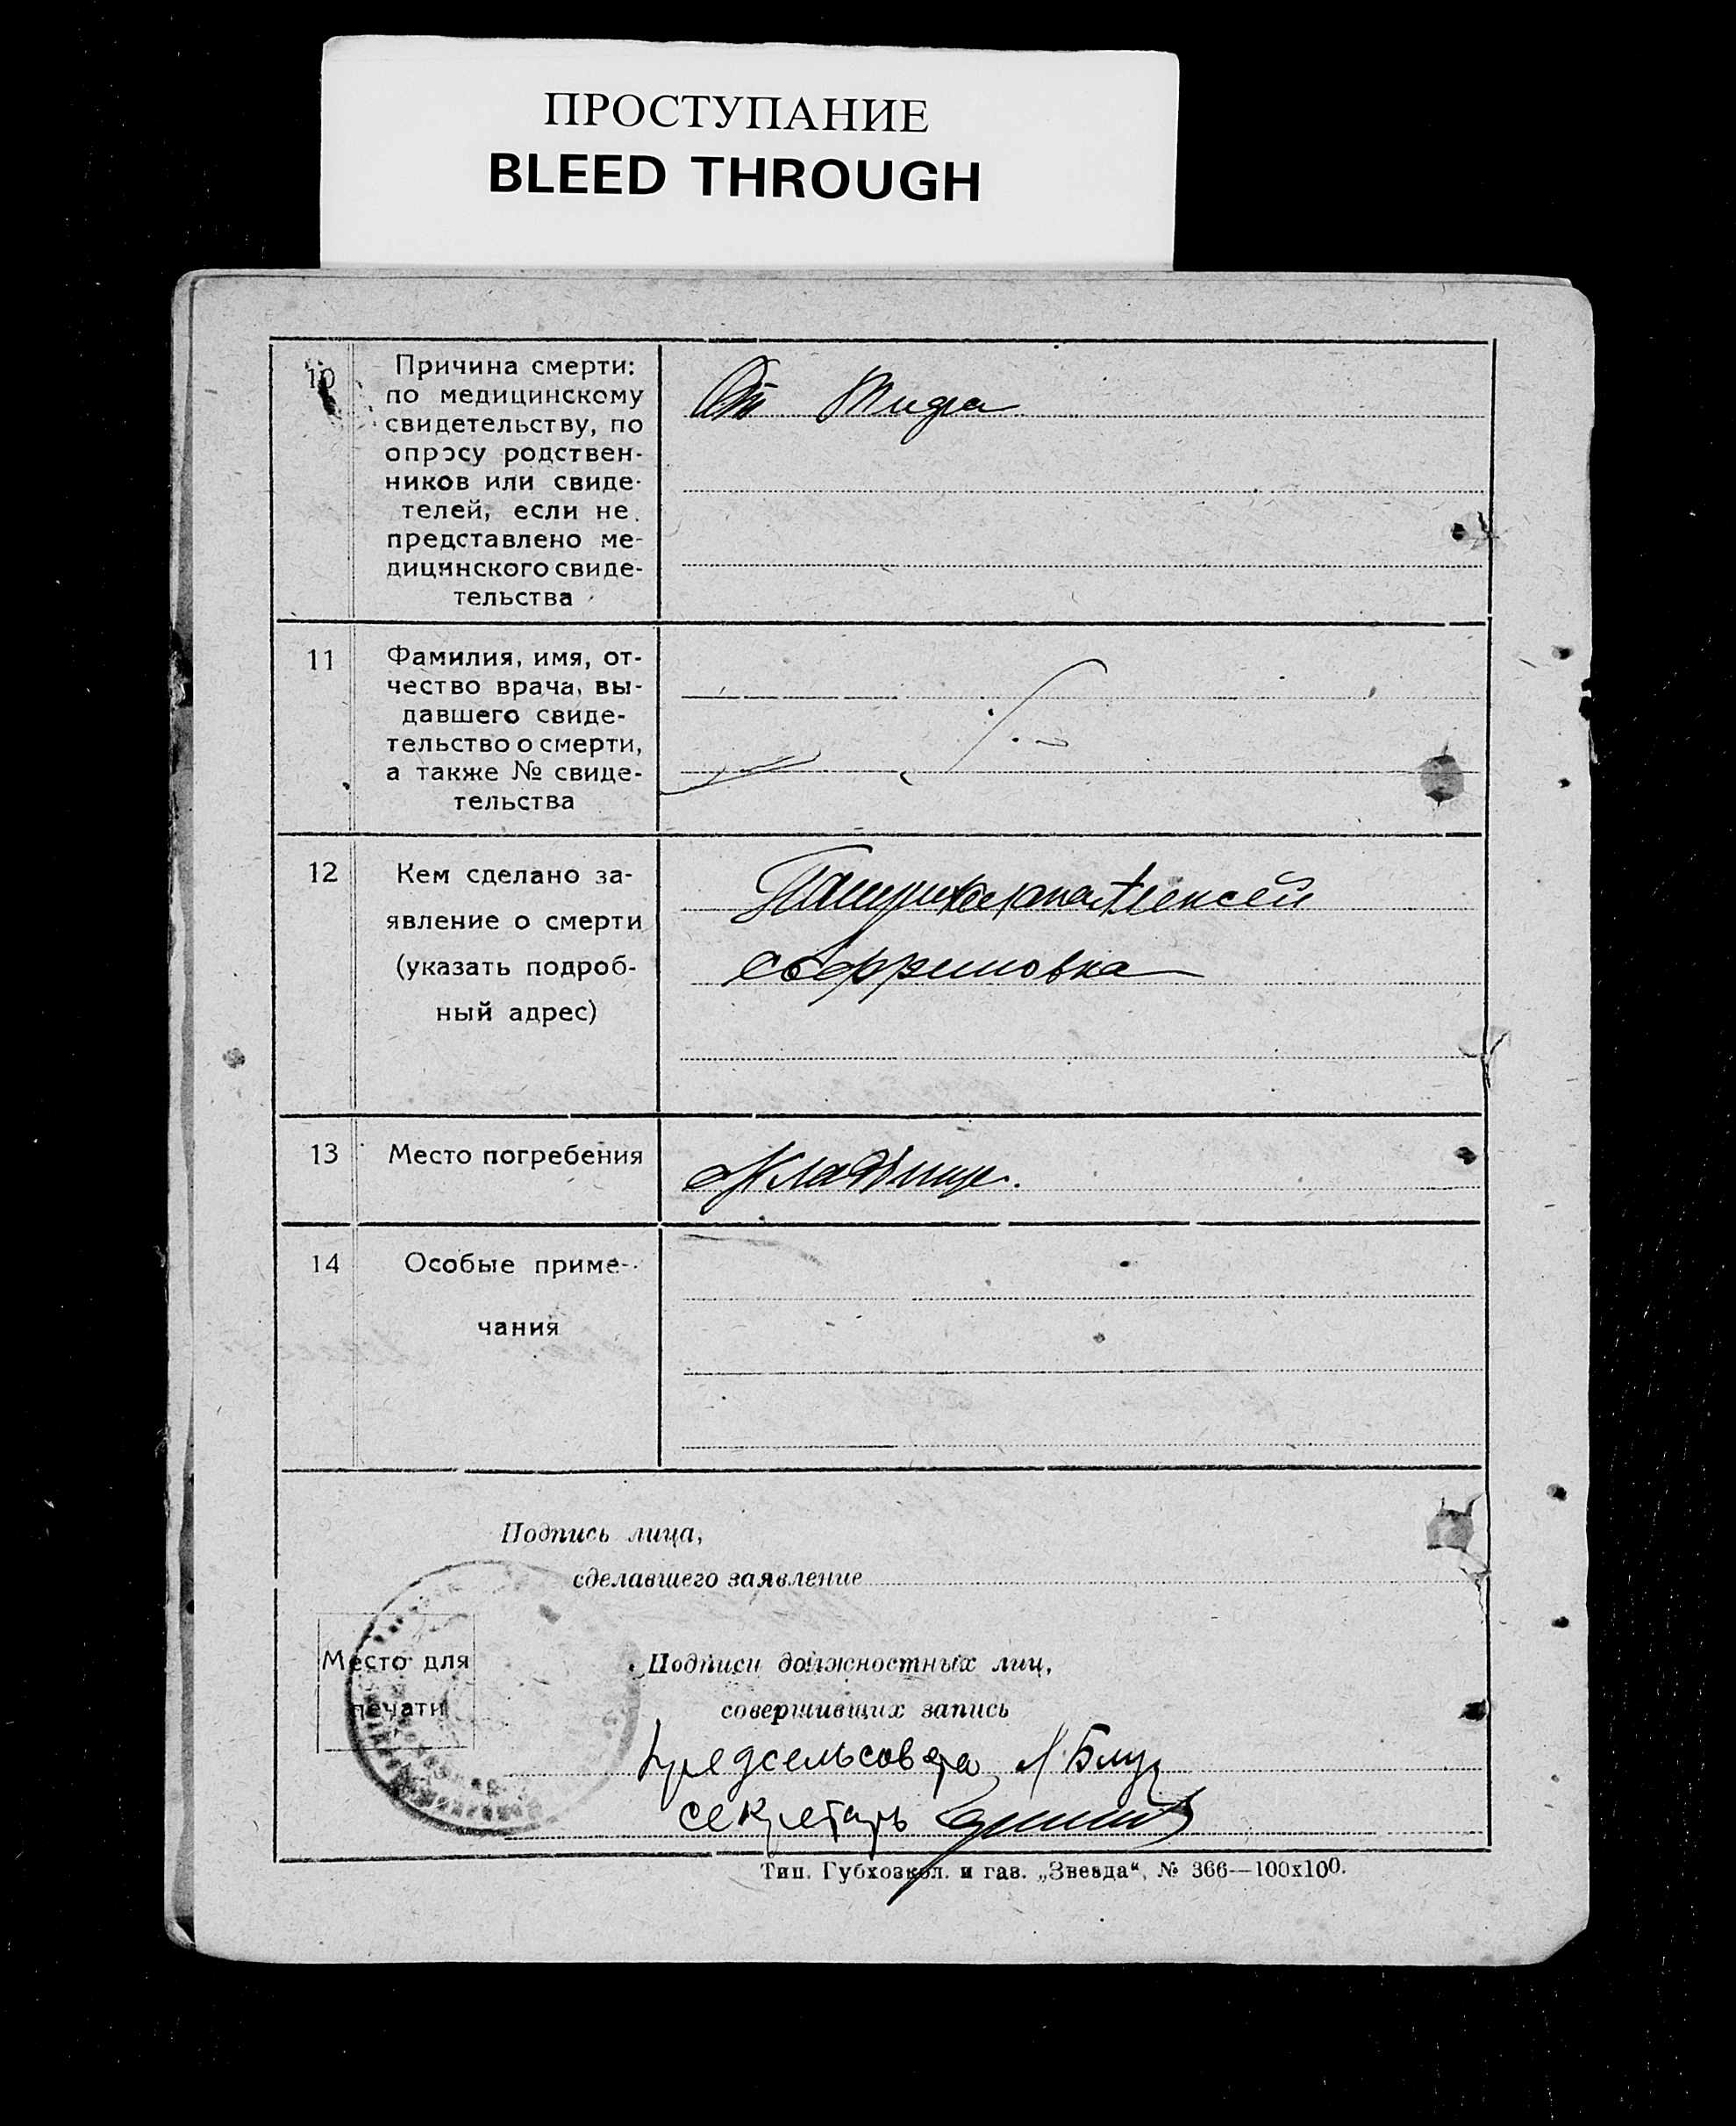 ПРОСТУПАНИЕ
BLEED THROUGH
10
Причина смерти:
по медицинскому
свидетельству, по
опросу родствен-
ников или свиде-
телей, если не
представлено ме-
дицинского свиде-
тельства
От Тифа
11
Фамилия, имя, от-
чество врача, вы-
давшего свиде-
тельство о смерти,
а также № свиде-
тельства
12
Кем сделано за-
явление о смерти
(указать подроб-
ный адрес)
Алексей
13
Место погребения
Кладбище.
14
Особые приме-
чания
Подпись лица,
сделавшего заявление
Место для
печати
Подписи должностных лиц,
совершивших запись
Предсельсовета
секретарь
Тип. Губхозкол. и газ. „Звезда“, № 366—100х100.